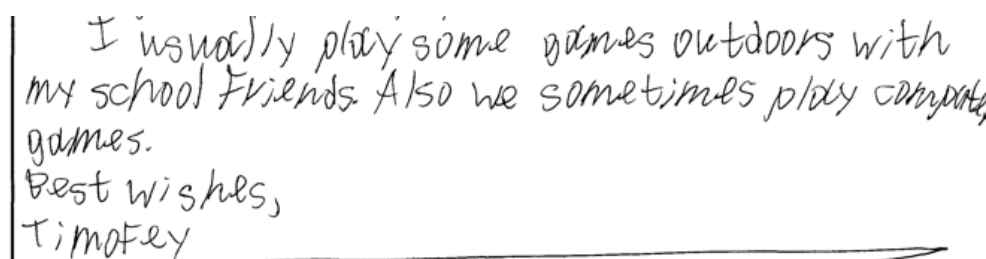 I usually play some games outdoors with
my school Friends. Also we sometimes play computer
games.
Best wishes,
Timofey